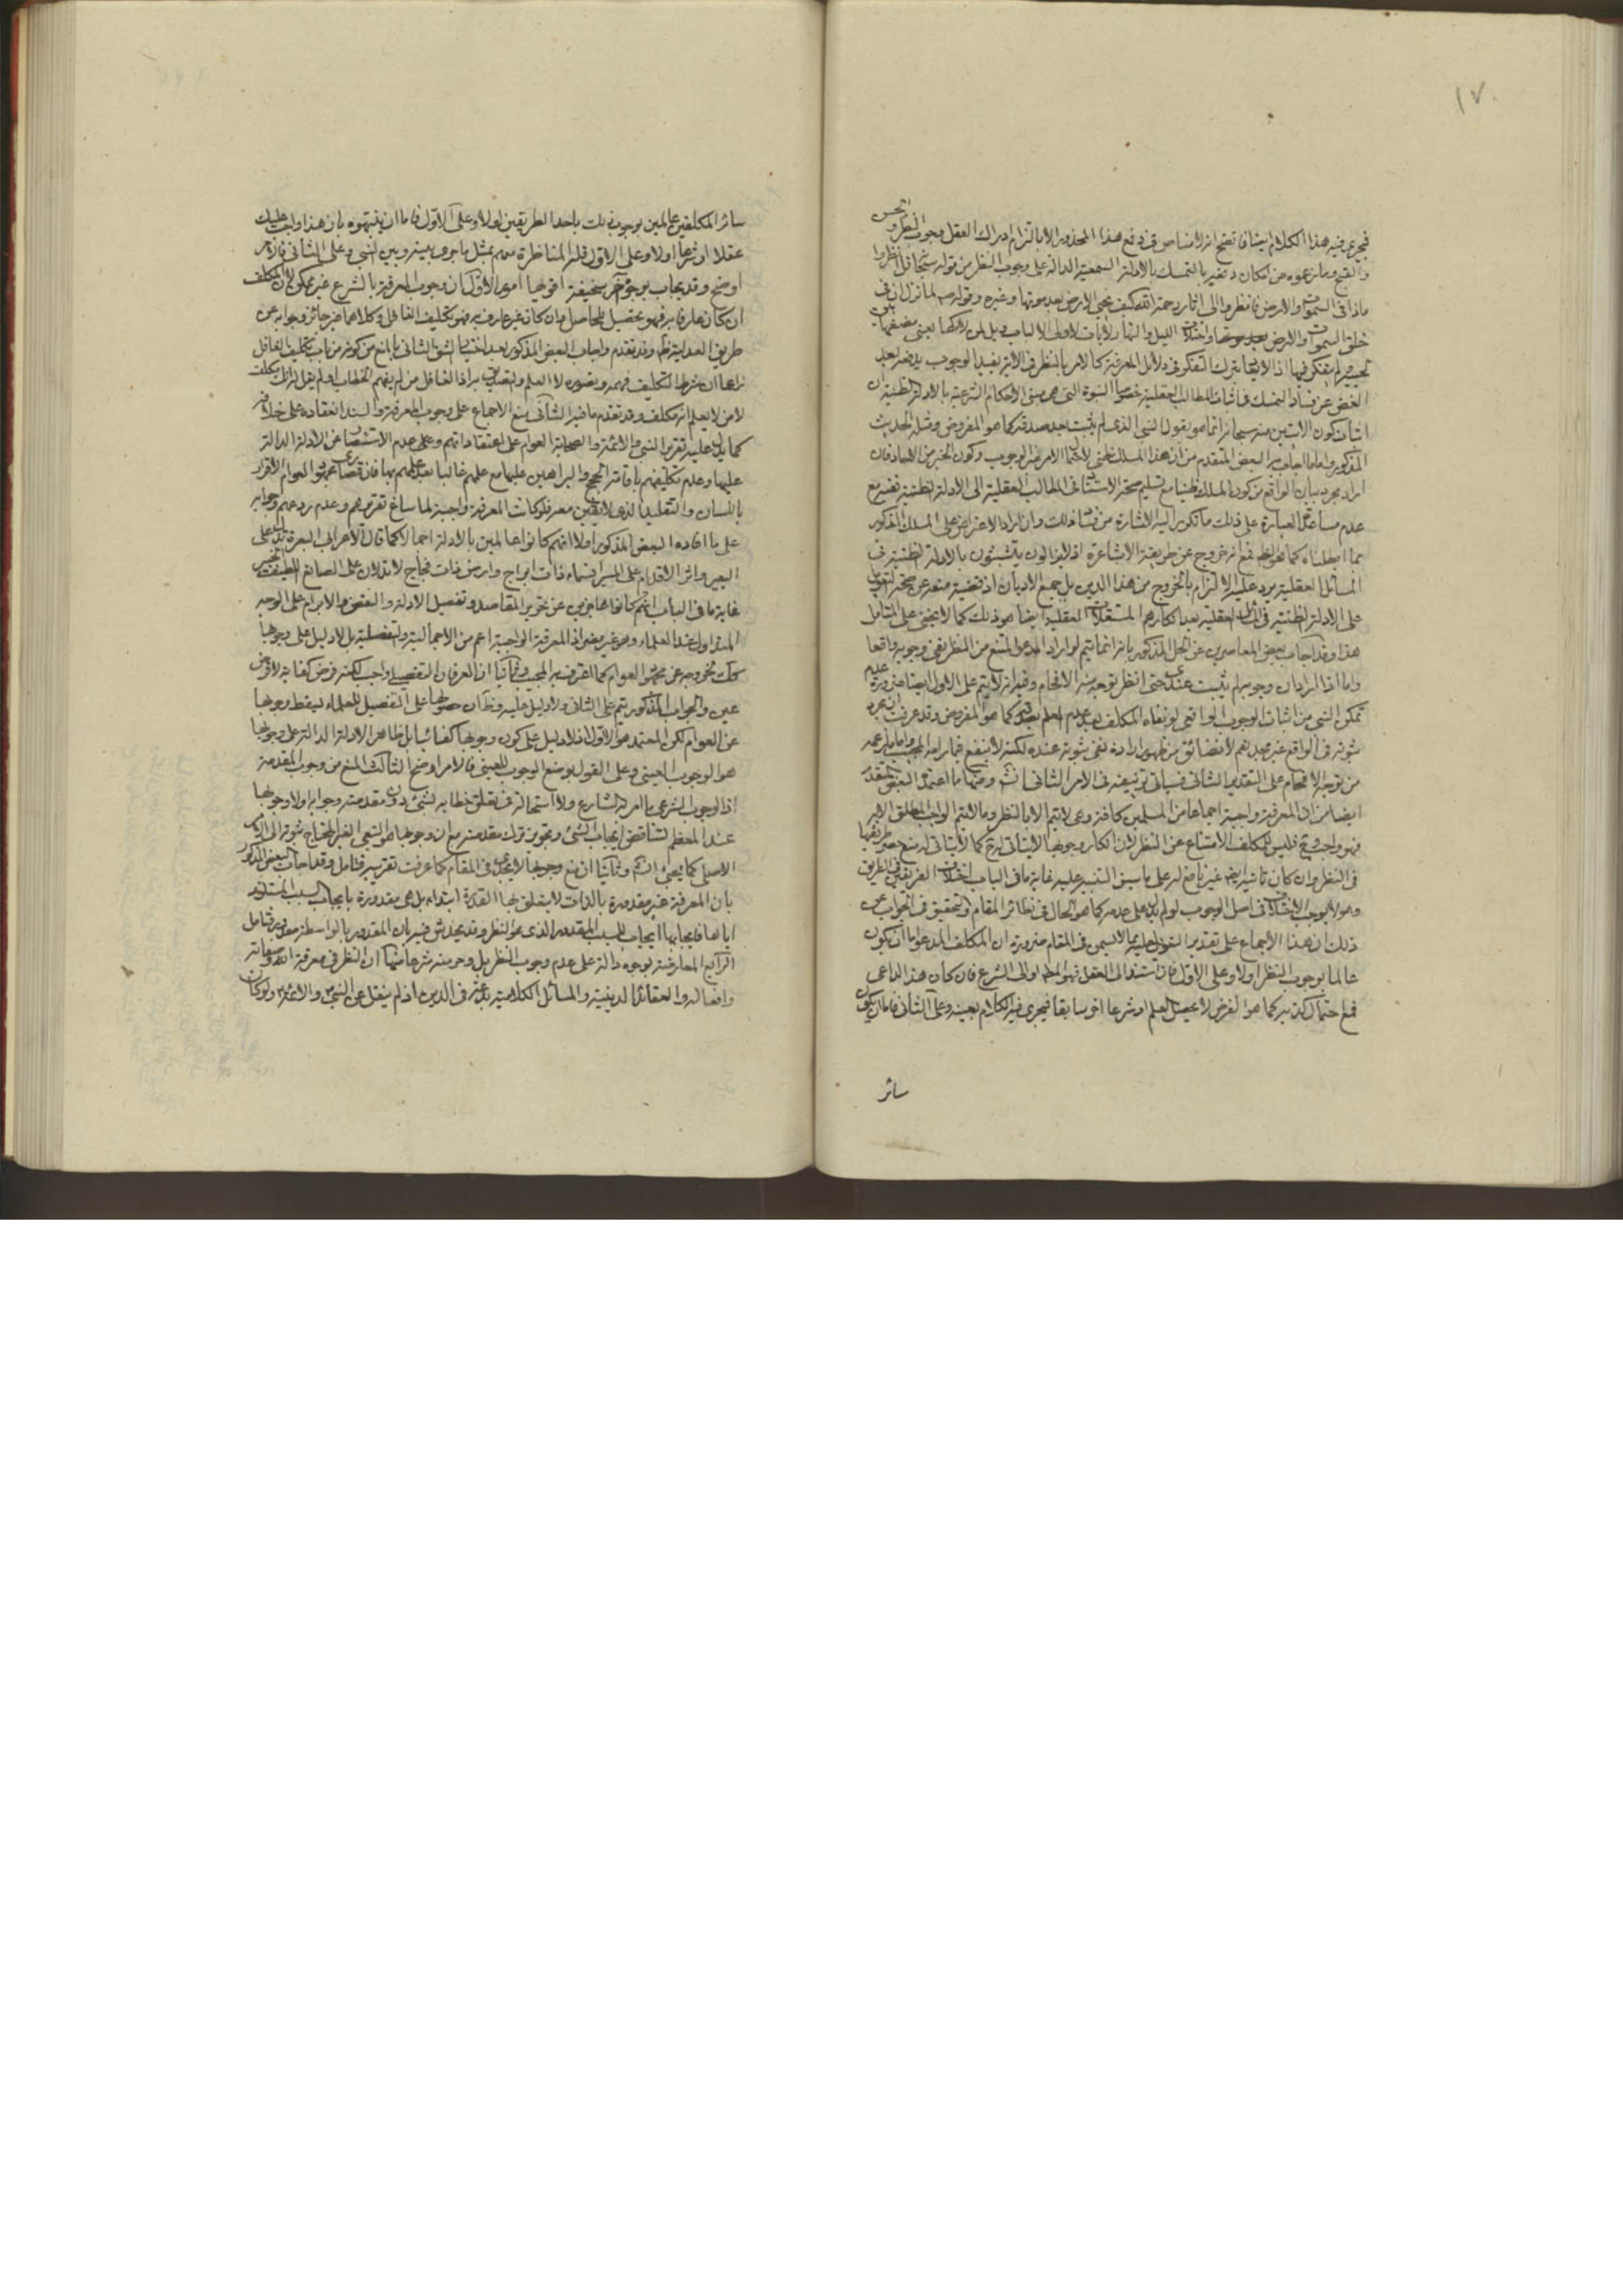 ١٧
فيجري فيه هذا الكلام ايضا فاتضح انه لا مناص في دفع هذا المحذور الا بالتزام ادراك العقل وجوب النظر والحسن
والقبح وما زعموه من امكان دفعه بالتمسك بالادلة السمعية الدالة على وجوب النظر من قوله سبحانه قل انظروا
ماذا في السموات والارض فانظروا الى اثار رحمة الله كيف يحيي الارض بعد موتها وغيره وقوله ص لما نزل ان في
خلق السموات والارض واختلاف الليل والنهار لايات لاولي الالباب ويل لمن لاكها بين
لحييه ولم يتفكر فيها اذ لا يتوعد بترك التفكر في دلائل المعرفة كالامر بالنظر في الاية يفيد الوجوب يدفعه بعد
الغض عن فساد التمسك في اثبات المطالب العقلية خصوصا النبوة التي هي مبنى الاحكام الشرعية بالادلة الظنية ان
اثبات كون الايتين منه سبحانه انما هو بقول النبي الذي لم يثبت بعد صدقه كما هو المفروض ومثله الحديث
المذكور واما ما اجاب به البعض المتقدم من ان هذا المسلك ظني لاحتمال الامر غير الوجوب وكون الخبر من الاحاد فان
اراد مجرد بيان الواقع من كون المسلك ظنيا مع تسليم صحة الاستناد في المطالب العقلية الى الادلة الظنية ففيه مع
عدم مساعدة العبارة على ذلك ما تكرر اليه الاشارة من فساد ذلك وان اراد الاعتراض على المسلك المذكور
مما ابطلناه كما هو الظاهر ففيه انه خروج عن طريقة الاشاعرة اذ لا يزالون يتشبثون بالادلة الظنية في
المسائل العقلية يرد عليه الالتزام بالخروج من هذا الدين بل جميع الاديان اذ قضية منعه عن صحة التعويل
على الادلة الظنية في المسائل العقلية بعد انكارهم المستقلات العقلية ايضا هو ذلك كما لا يخفى على المتامل
هذا وقد اجاب بعض المعاصرين عن الحل المذكور بانه انما يتم لو اراد المدعو الممتنع من النظر نفي وجوبه واقعا
واما اذا اراد ان وجوبه لم يثبت عندي حتى انظر توجه منه الافحام وفيه انه لا يتم على الاول ايضا ضرورة عدم
تمكن النبي من اثبات الوجوب الواقعي لو نفاه المكلف بعد عدم العلم بصدقه كما هو المفروض وقد عرفت ان مجرد
ثبوته في الواقع غير مجد
من توجه الافحام على التقدير الثاني فسياتي تزييفه في الامر الثاني ان شاء الله ومنها ما اعتمد البعض المتقدم
ايضا من ان المعرفة واجبة اجماعا من المسلمين كافة وهي لا تتم الا بالنظر وما لا يتم الواجب المطلق الا به
فهو واجب فليس للمكلف الامتناع عن النظر
في النظر وان كان
وهو لا يوجب الاختلاف في اصل الوجوب لو لم يدل على عدمه كما هو الحال في نظائر المقام والتحقيق في الجواب عن
ذلك ان هذا الاجماع على تقدير القول بحجيته مما لا يسمن في المقام ضرورة ان المكلف المدعو اما ان يكون
عالما بوجوب النظر اولا وعلى الاول فان استند الى العقل فهو المطلوب او الى الشرع فان كان هذا الداعي
فمع احتمال كذبه كما هو الفرض لا يحصل العلم او شرعا اخر سابقا فيجري فيه الكلام بعينه وعلى الثاني فاما ان يكون
سائر
سائر المكلفين عالمين بوجوب ذلك باحد الطريقين اولا وعلى الاول فاما ان ينبهوه بان هذا واجب عليك
عقلا او شرعا اولا وعلى الاول فله المناظرة معهم بمثل ما جرى بينه وبين النبي وعلى الثاني فالامر
اوضح وقد يجاب بوجوه اخر سخيفة اقواها امور الاول ان وجوب المعرفة بالشرع غير ممكن لان المكلف
ان كان عارفا به فهو تحصيل للحاصل وان كان غير عارف به فهو تكليف الغافل وكلاهما غير جائز وجوابه عن
طريق العدلية ظاهر وقد تقدم واجاب البعض المذكور بعد اختيار الشق الثاني بالمنع من كونه من باب تكليف الغافل
زاعما ان شرط التكليف فهمه وتصوره لا العلم والتصديق به اذ الغافل من لم يفهم الخطاب او لم يقل له انك مكلف
لا من لا يعلم انه مكلف وقد تقدم ما فيه الثاني منع الاجماع على وجوب المعرفة والسند انعقاده على خلافه
كما يدل عليه تقرير النبي والائمة والصحابة العوام على اعتقاداتهم وعلى عدم الاستفصاء عن الادلة الدالة
عليها وعدم تكليفهم باقامة الحجج والبراهين عليها مع علمهم غالبا بعدم علمهم بها فان قصارى عموم العوام الاقرار
باللسان والتقليد الذي لا يقين معه فلو كانت المعرفة واجبة لما ساغ تقريرهم وعدم ردعهم وجوابه
على ما افاده البعض المذكور اولا انهم كانوا عالمين بالادلة اجمالا كما قال الاعرابي البعرة تدل على
البعير واثر الاقدام على المسير افسماء ذات ابراج وارض ذات فجاج لا تدلان على الصانع اللطيف الخبير
غاية ما في الباب انهم كانوا عاجزين عن تحرير المقاصد وتفصيل الادلة والنقض والابرام على الوجه
المتداول عند العلماء وهو غير مضر اذ المعرفة الواجبة اعم من الاجمالية والتفصيلية بل لا دليل على وجوبها
كذلك لخروجه عن عموم العوام كما اعترف به المجيب وثانيا ان العرفان التفصيلي واجب لكنه فرض كفاية لا فرض
عين والجواب المذكور يتم على الثاني ولا دليل عليه وظاهر ان حصولها على التفصيل للعلماء يسقط وجوبها
عن العوام لكن المعتمد هو الاول اذ لا دليل على كون وجوبها كفائيا بل ظاهر الادلة الدالة على وجوبها
هو الوجوب العيني وعلى القول بوضع الوجوب للعيني فالامر اوضح الثالث المنع من وجوب المقدمة
اذ الوجوب الشرعي بامر الشارع ولا استحالة في تعلق خطابه بشيء دون مقدمته وجوابه اولا وجوبها
عند المعظم لتناقض ايجاب الشيء وتجويز ترك مقدمته مع ان وجوبها هو التبعي الغير المحتاج ثبوته الى الامر
الاصلي كما يجيء ان شاء الله وثانيا ان منع وجوبها لا يجدي في المقام كما عرفت تقريره فتامل وقد اجاب البعض المذكور
بان المعرفة غير مقدورة بالذات لا يتعلق بها القدرة ابتداء بل هي مقدورة بايجاب السبب المستلزم
اياها فايجابها ايجاب للسبب المقدور الذي هو النظر وقد يخدش فيه بان المقدور بالواسطة مقدور فتامل
الرابع المعارضة بوجوه دالة على عدم وجوب النظر بل وحرمته شرعا منها ان النظر في معرفة الله وصفاته
وافعاله والعقائد الدينية والمسائل الكلامية بدعة في الدين اذ لم ينقل عن النبي ص والائمة ولو كان